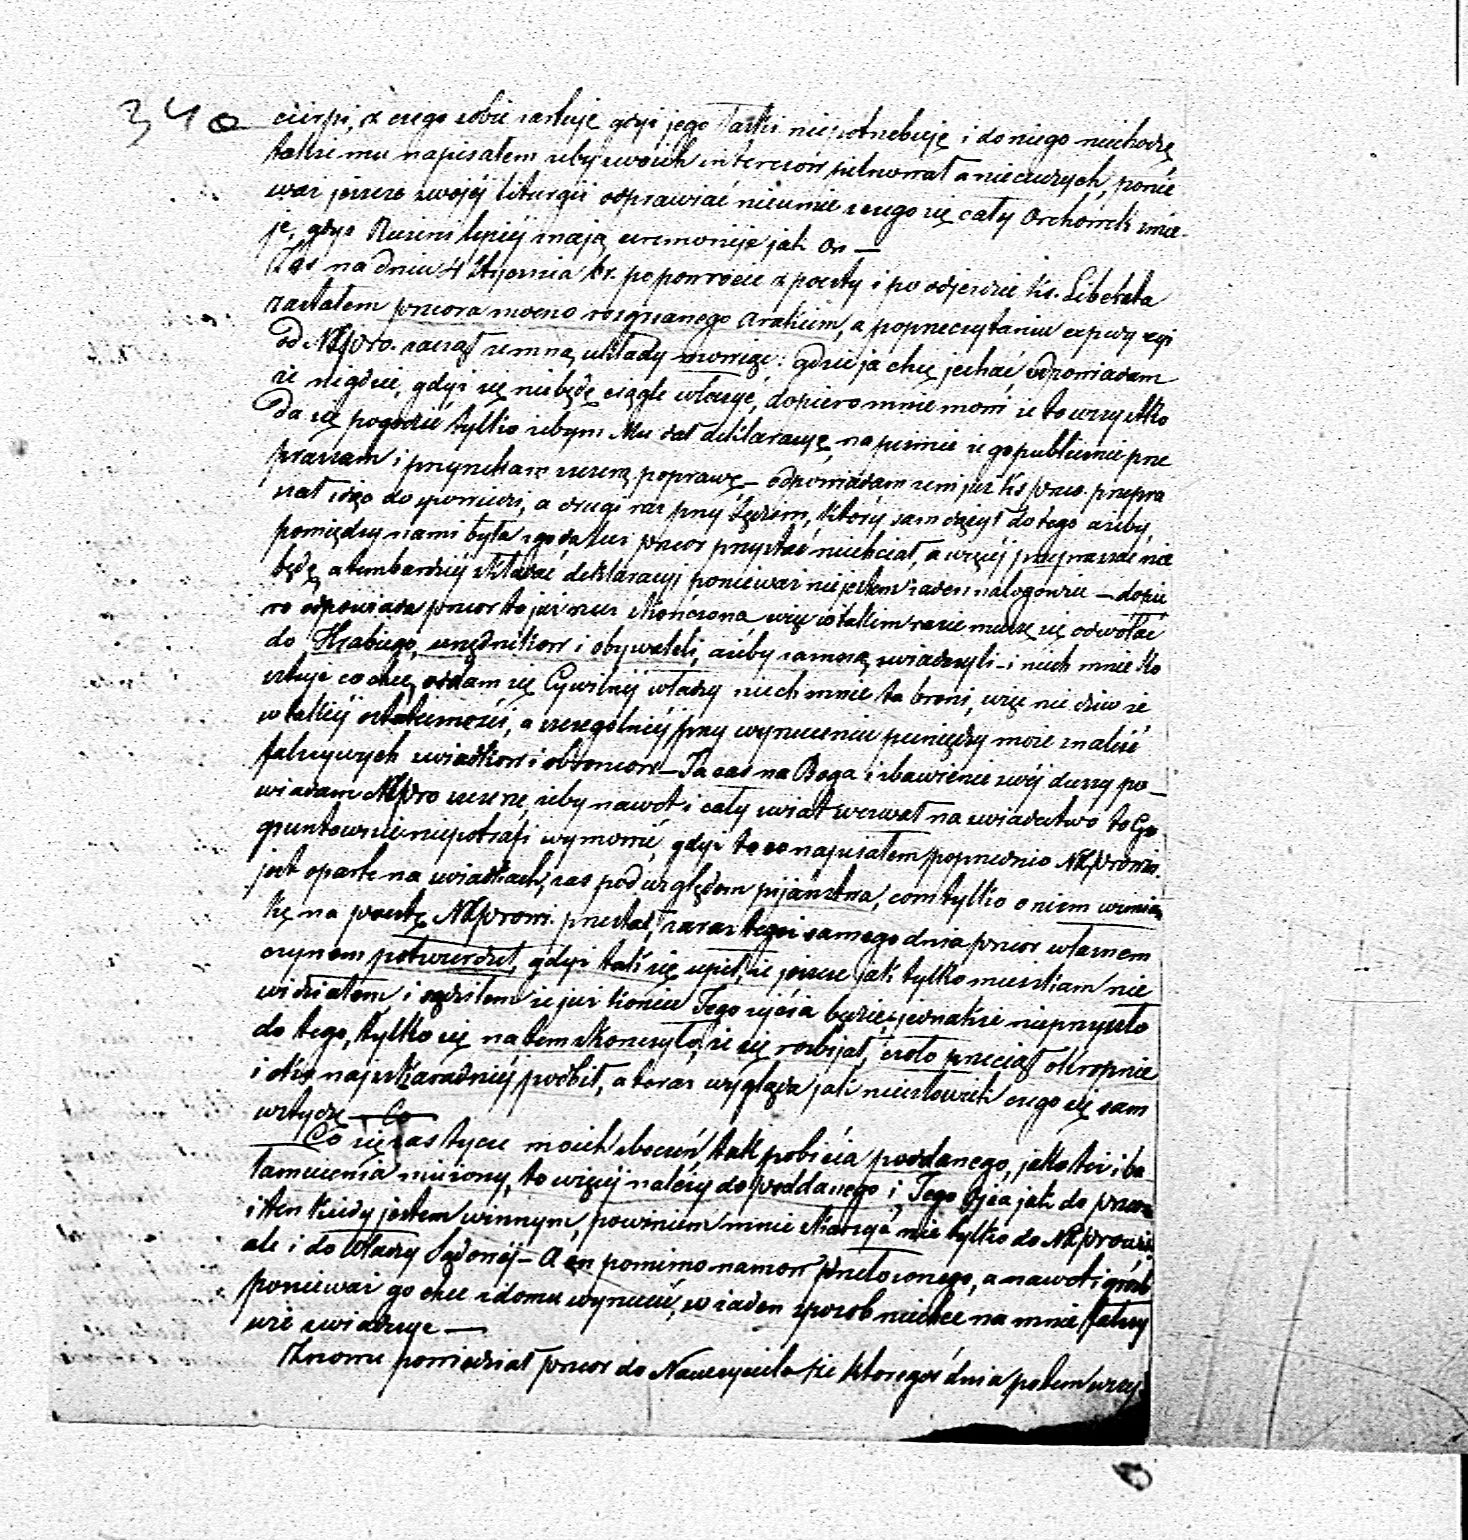 340
cierpi, z czego sobie żartuję gdyż jego łaski niepotrzebuję i do niego niechodzę
także mu napisałem żeby swoich interesów pilnował a nie cudzych, ponie
waż jeszcze swojéj liturgii odprawiać nieumie z czego się cały Orchówek śmie-
je, gdyż Rusini lepiéj znają ceremonije jak On —
Zaś na dniu 4 Stycznia br. po powrocie z poczty i po odjeździe ks. Liberata
zastałem przeora mocno rozgrzanego Arakiem, a po przeczytaniu expedycyi
od NXPro. zaczął zemną układy mówiąc: gdzie ja chcę jechać, odpowiadam
że nigdzie, gdyż się niebędę ciągle włóczyć, dopiero mnie mówi że to wszystko
da się pogodzić tylko żebym Mu dał deklaracyę na piśmie że go publicznie prze
praszam i przyrzekam szczerą poprawę — odpowiadam żem już ks przeo. przepra
szał idąc do spowiedzi, a drugi raz przy Sędzim, który sam dążył do tego ażeby
pomiędzy nami była zgoda lecz przeor przystać niechciał, a więcéj przepraszać nie
będę, a tembardziéj składać deklaracyj ponieważ nie jestem żaden nałogowiec — dopie
ro odpowiada przeor to już rzecz skończona, więc w takim razie muszę się odwołać
do Hrabiego, urzędników i obywateli, ażeby zamną świadczyli — i niech mnie ko
sztuje co chce, oddam się Cywilnéj władzy niech mnie ta broni, więc nie dziw że
w takiéj ostateczności, a szczególniéj przy wyrzuceniu pieniędzy może znaleść
fałszywych świadków i obrońców — Ja zaś na Boga i zbawienie swéj duszy po-
wiadam NXPro szczerze, żeby nawet i cały świat wezwał na świadectwo to Go
gruntownie niepotrafi wymówić, gdyż to co napisałem poprzednio NXProwin.
jest oparte na świadkach, zaś pod względem pijaństwa, com tylko o niem wzmian
kę na pocztę NXProwi. przesłał, zaraz tegoż samego dnia przeor własnem
czynem potwierdził, gdyż tak się upił, że jeszcze jak tylko mieszkam nie
widziałem i sądziłem że już koniec Jego życia będzie, jednakże nieprzyszło
do tego, tylko się na tem skończyło, że się rozbijał, czoło przeciął okropnie
i oko najszkaradniéj podbił, a teraz wygląda jak nieczłowiek czego się sam
wstydzę —
Co się zaś tycze moich zboczeń tak pobicia poddanego, jako też i ba
łamucenia mu żony, to więcéj należy do poddanego i Jego Ojca jak do przeora
i ten kiedy jestem winnym, powinien mnie skarżyć nie tylko do NXProwin.
ale i do Władzy Sądowéj — A on pomimo namów przełożonego, a nawet i gróźb
ponieważ go chce z domu wyrzucić, w żaden sposób niechce na mnie fałszy
wie świadczyć —
Znowu powiedział przeor do Nauczyciela że któregoś dnia potem wszy-